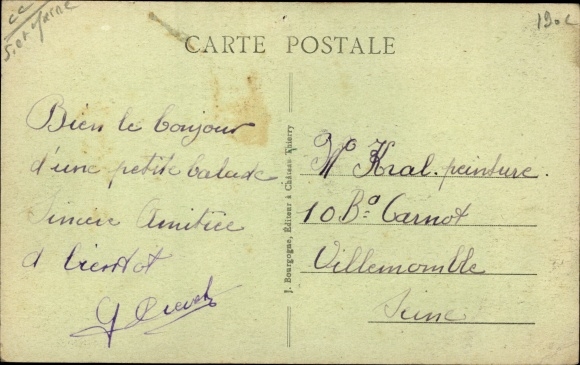 CC
S. et Marne
CARTE POSTALE
Bien le bonjour
d'une petite balade
Sincère Amitiée
A bientot
J. Bourgogne, Éditeur à Château-Thierry
Mr Kral. peinture.
10 Bd Carnot
Villemomble
Seine